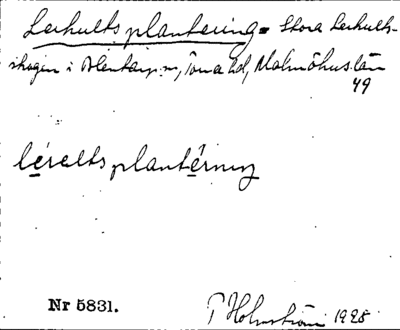 Lerhultsplantering = Stora Lerhults-
skogen i Stentorp m, Tonna hd, Malmöhus län
49
léreltsplantérninz
Nr 5831.
P Holmström 1928